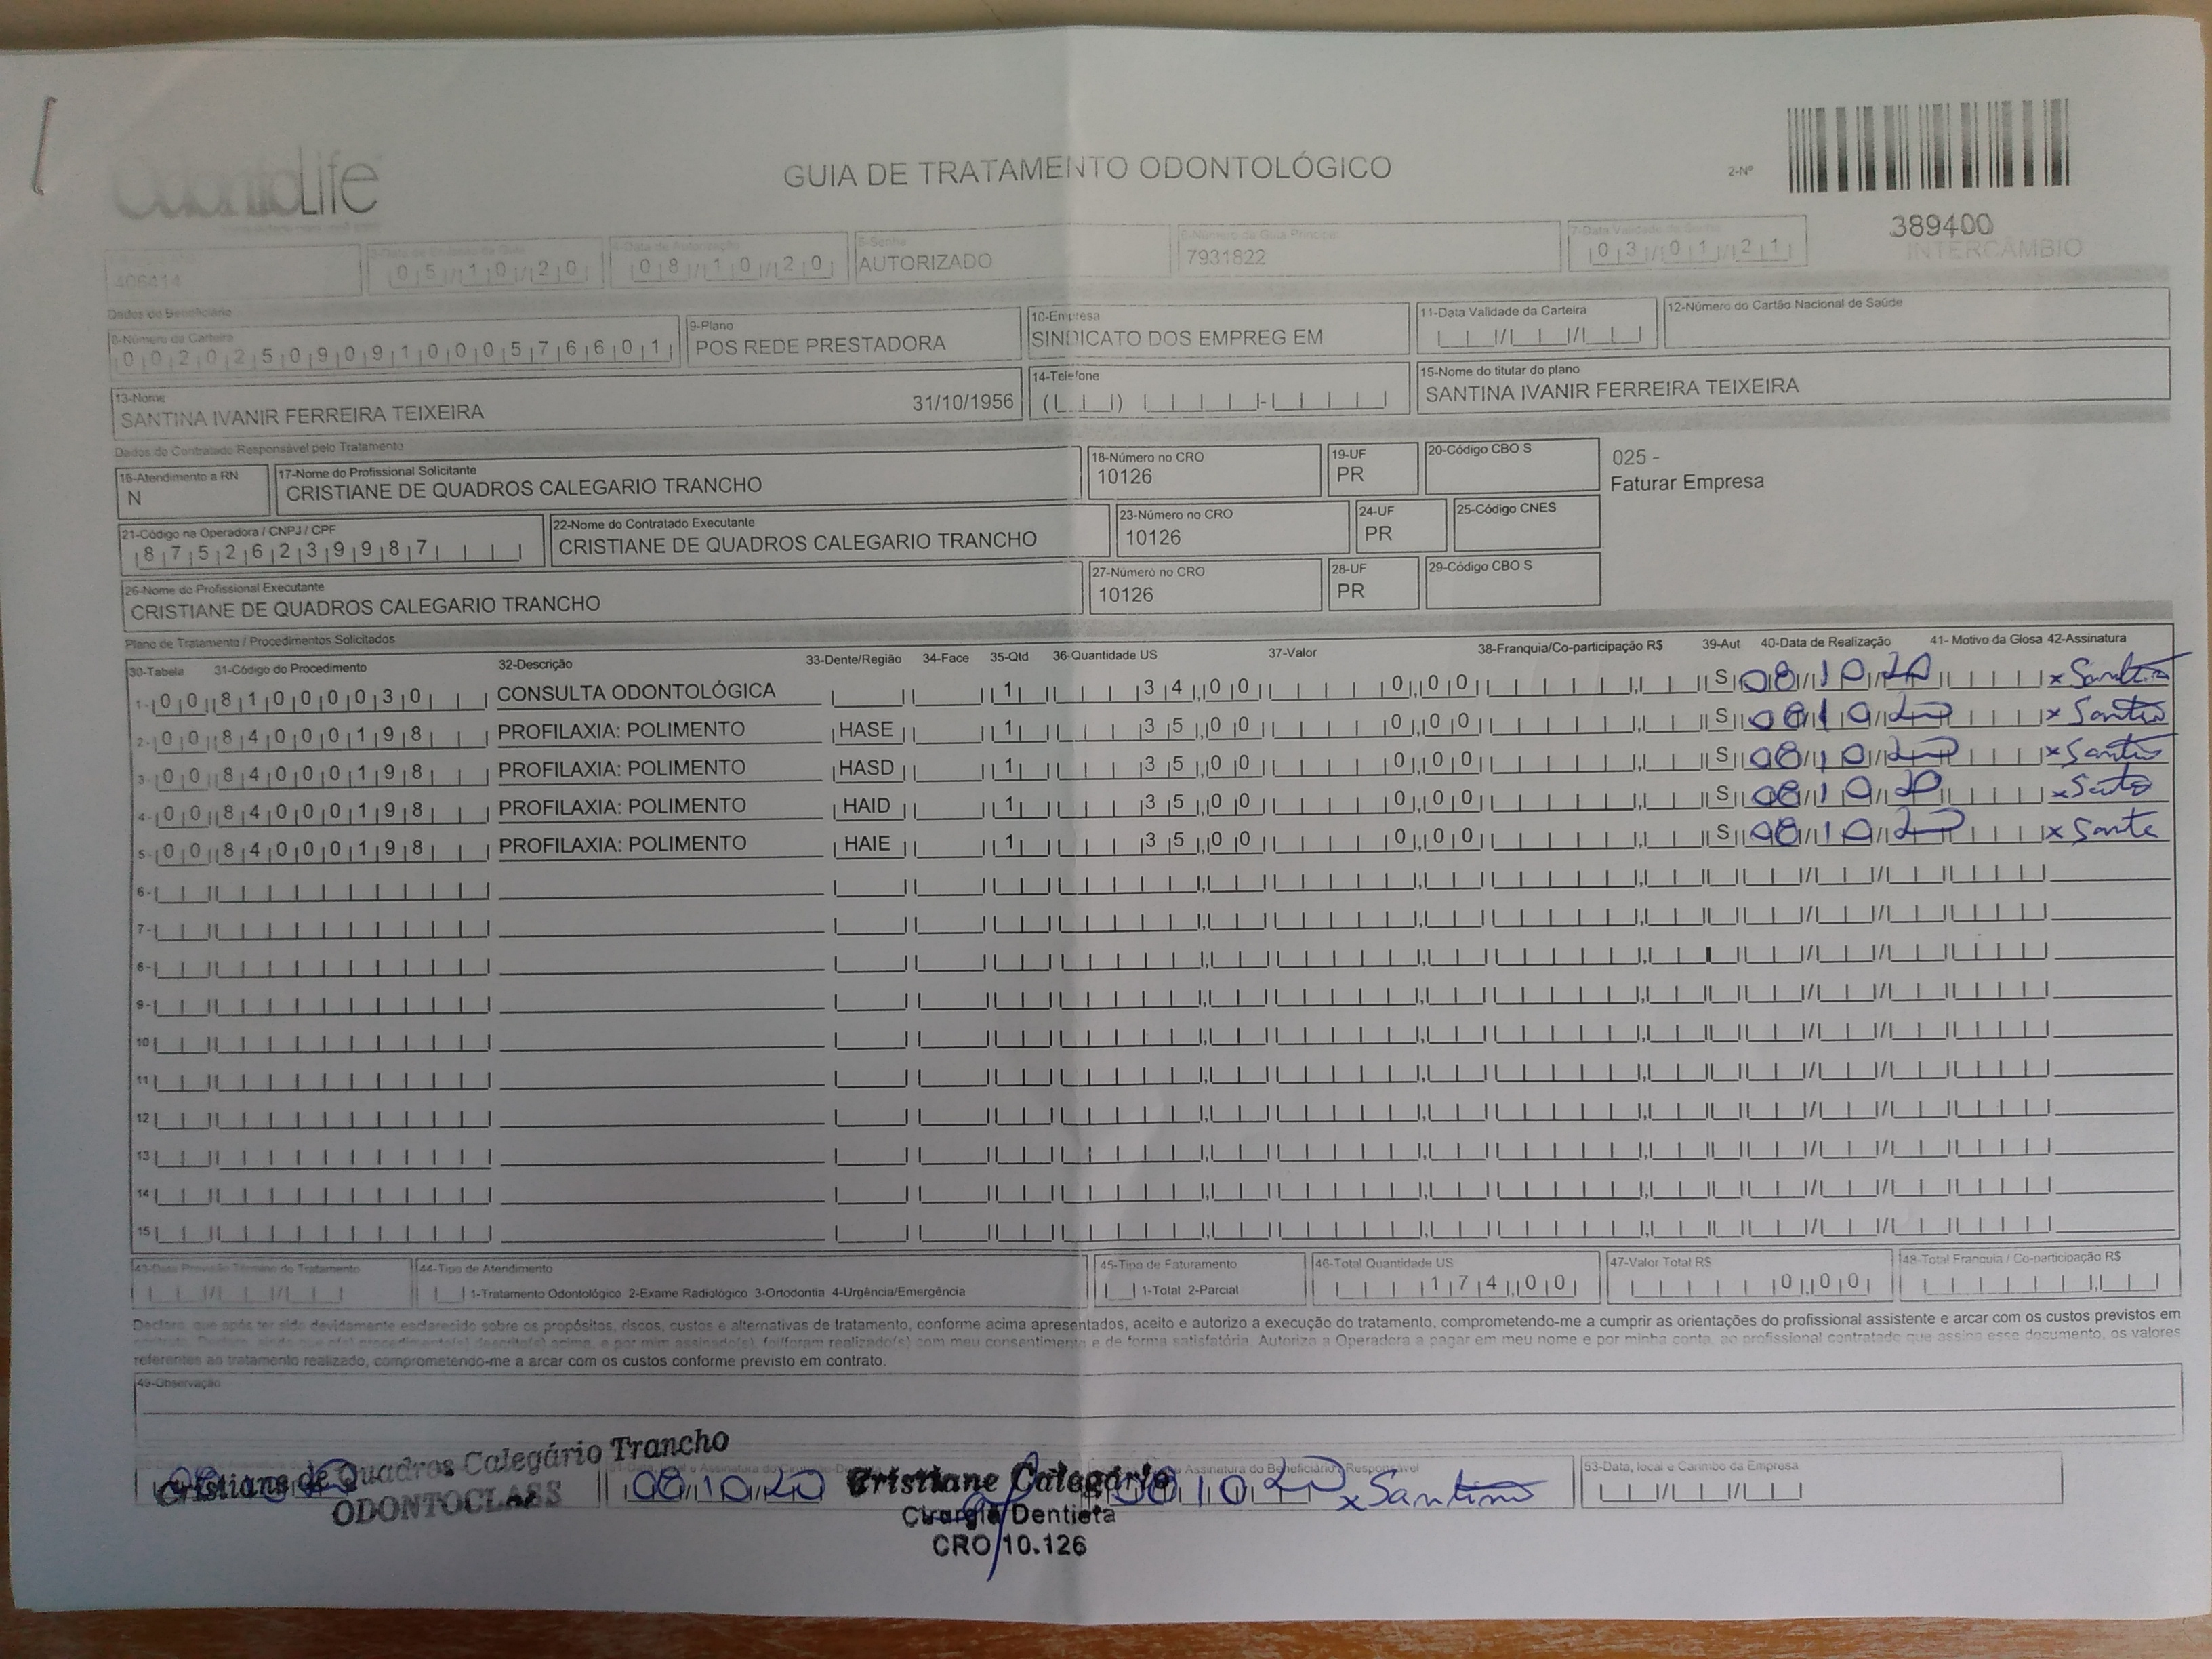 OdontoLife
GUIA DE TRATAMENTO ODONTOLÓGICO
2-Nº
389400
INTERCÂMBIO
406414
05/10/20
4-Data de Autorização
08/10/20
5-Senha
AUTORIZADO
6-Número da Guia Principal
7931822
7-Data Validade da Senha
03/01/21
Dados do Beneficiário
8-Número da Carteira
00202509091000576601
9-Plano
POS REDE PRESTADORA
10-Empresa
SINDICATO DOS EMPREG EM
11-Data Validade da Carteira
12-Número do Cartão Nacional de Saúde
13-Nome
SANTINA IVANIR FERREIRA TEIXEIRA 31/10/1956
14-Telefone
15-Nome do titular do plano
SANTINA IVANIR FERREIRA TEIXEIRA
Dados do Contratado Responsável pelo Tratamento
16-Atendimento a RN
N
17-Nome do Profissional Solicitante
CRISTIANE DE QUADROS CALEGARIO TRANCHO
18-Número no CRO
10126
19-UF
PR
20-Código CBO S
025 -
Faturar Empresa
21-Código na Operadora / CNPJ / CPF
87526239987
22-Nome do Contratado Executante
CRISTIANE DE QUADROS CALEGARIO TRANCHO
23-Número no CRO
10126
24-UF
PR
25-Código CNES
26-Nome do Profissional Executante
CRISTIANE DE QUADROS CALEGARIO TRANCHO
27-Número no CRO
10126
28-UF
PR
29-Código CBO S
Plano de Tratamento / Procedimentos Solicitados
30-Tabela 31-Código do Procedimento 32-Descrição 33-Dente/Região 34-Face 35-Qtd 36-Quantidade US 37-Valor 38-Franquia/Co-participação R$ 39-Aut 40-Data de Realização 41- Motivo da Glosa 42-Assinatura
1- 00 81000030 CONSULTA ODONTOLÓGICA 1 34,00 0,00 S 08/10/20 x
2- 00 84000198 PROFILAXIA: POLIMENTO HASE 1 35,00 0,00 S 08/10/20 x
3- 00 84000198 PROFILAXIA: POLIMENTO HASD 1 35,00 0,00 S 08/10/20 x
4- 00 84000198 PROFILAXIA: POLIMENTO HAID 1 35,00 0,00 S 08/10/20 x
5- 00 84000198 PROFILAXIA: POLIMENTO HAIE 1 35,00 0,00 S 08/10/20 x
6-
7-
8-
9-
10
11
12
13
14
15
43-Data Previsão Término do Tratamento
44-Tipo de Atendimento
1-Tratamento Odontológico 2-Exame Radiológico 3-Ortodontia 4-Urgência/Emergência
45-Tipo de Faturamento
1-Total 2-Parcial
46-Total Quantidade US
174,00
47-Valor Total R$
0,00
48-Total Franquia / Co-participação R$
Declaro, que após ter sido devidamente esclarecido sobre os propósitos, riscos, custos e alternativas de tratamento, conforme acima apresentados, aceito e autorizo a execução do tratamento, comprometendo-me a cumprir as orientações do profissional assistente e arcar com os custos previstos em
contrato. Declaro, ainda que o(s) procedimento(s) descrito(s) acima, e por mim assinado(s), foi/foram realizado(s) com meu consentimento e de forma satisfatória. Autorizo a Operadora a pagar em meu nome e por minha conta, ao profissional contratado que assina esse documento, os valores
referentes ao tratamento realizado, comprometendo-me a arcar com os custos conforme previsto em contrato.
49-Observação
Cristiane de Quadros Calegário Trancho
ODONTOCLASS
08/10/20
Cristiane Calegário
Cirurgiã Dentista
CRO 10.126
Assinatura do Beneficiário / Responsável
08/10/20 x
53-Data, local e Carimbo da Empresa